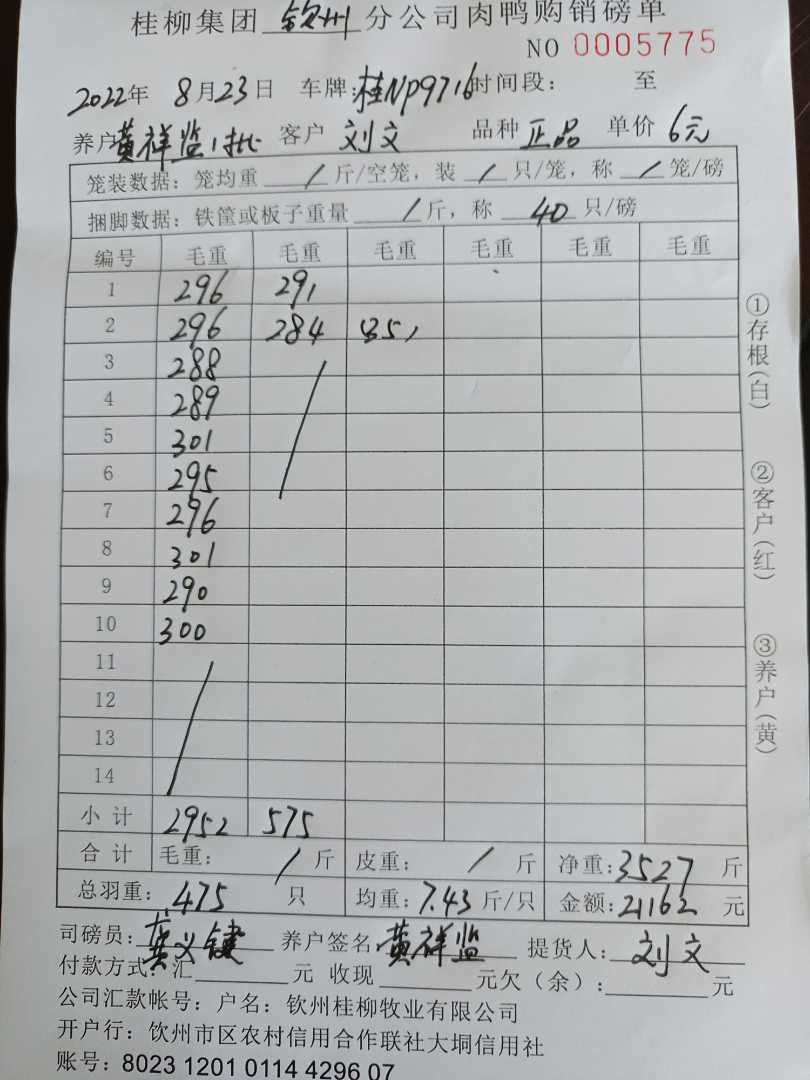 桂柳集团 钦州 分公司肉鸭购销磅单
NO 0005775
2022年 8月23日 车牌:桂Np9716 时间段: 至
养户 黄祥监1批 客户 刘文 品种 正品 单价 6元
笼装数据: 笼均重 / 斤/空笼, 装 / 只/笼, 称 / 笼/磅
捆脚数据: 铁筐或板子重量 / 斤, 称 40 只/磅
编号 毛重 毛重 毛重 毛重 毛重 毛重
1 296 291
2 296 284 (35)
3 288
4 289
5 301
6 295
7 296
8 301
9 290
10 300
11
12
13
14
小计 2952 575
合计 毛重: / 斤 皮重: / 斤 净重: 3527 斤
总羽重: 475 只 均重: 7.43 斤/只 金额: 21162 元
司磅员: 龚义键 养户签名 黄祥监 提货人: 刘文
付款方式: 汇 元 收现 元欠(余): 元
公司汇款帐号: 户名: 钦州桂柳牧业有限公司
开户行: 钦州市区农村信用合作联社大垌信用社
账号: 8023 1201 0114 4296 07
①存根(白)
②客户(红)
③养户(黄)